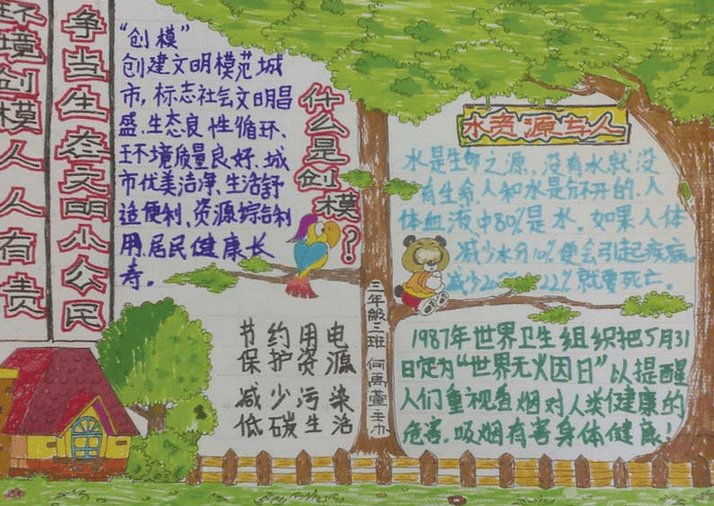 争当生态文明小公民
环境创模人人有责
“创模”
创建文明模范城
市，标志社会文明昌
盛、生态良性循环、
环境质量良好、城
市优美洁净、生活舒
适便利、资源综合利
用、居民健康长
寿。
什么是创模？
节约用电
保护资源
减少污染
低碳生活
三年級三班
水资源与人
水是生命之源，没有水就没
有生命，人和水是分不开的，人
体血液中80%是水，如果人体
减少水分10%便会引起疾病，
减少20%～22%就要死亡。
1987年世界卫生组织把5月31
日定为“世界无烟日”以提醒
人们重视香烟对人类健康的
危害。吸烟有害身体健康！